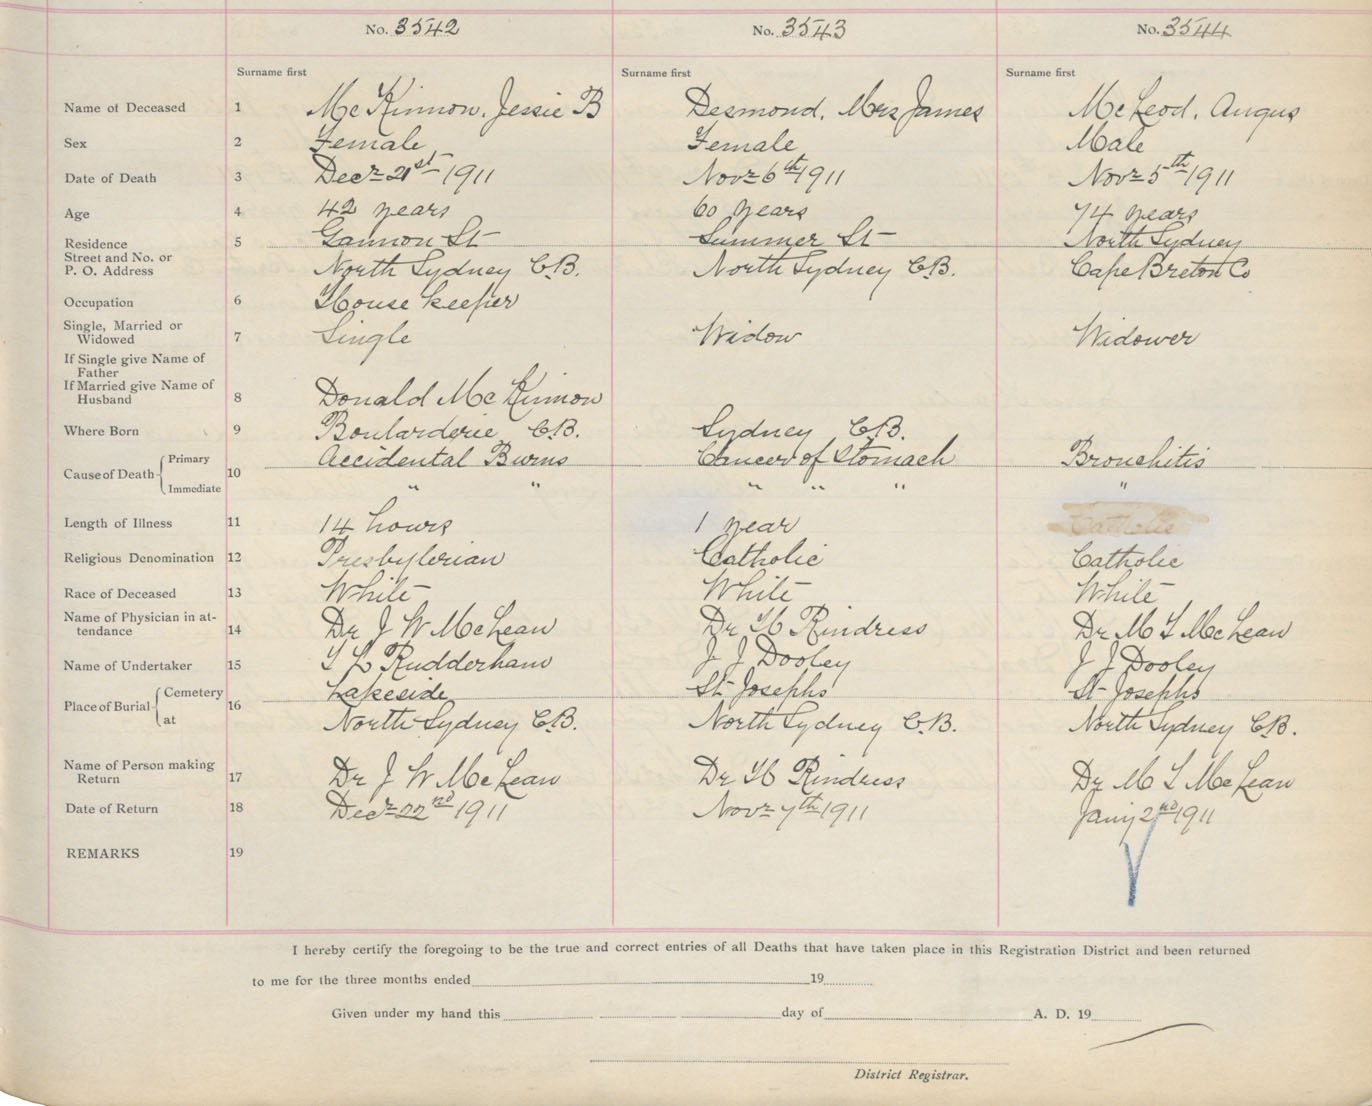 No. 3542 No. 3543 No. 3544
Surname first Surname first Surname first
Name of Deceased 1 McKinnon, Jessie B Desmond, Mrs James McLeod, Angus
Sex 2 Female Female Male
Date of Death 3 Decr 21st 1911 Novr 6th 1911 Novr 5th 1911
Age 4 42 years 60 years 74 years
Residence 5 Gannon St Summer St North Sydney
Street and No. or
P. O. Address North Sydney C.B. North Sydney C.B. Cape Breton Co
Occupation 6 House keeper
Single, Married or
Widowed 7 Single Widow Widower
If Single give Name of
Father
If Married give Name of
Husband 8 Donald McKinnon
Where Born 9 Boularderie C.B. Sydney C.B.
Cause of Death Primary 10 Accidental Burns Cancer of Stomach Bronchitis
Immediate " " " " " "
Length of Illness 11 14 hours 1 year Catholic
Religious Denomination 12 Presbyterian Catholic Catholic
Race of Deceased 13 White White White
Name of Physician in at-
tendance 14 Dr J W McLean Dr H Rindress Dr M T McLean
Name of Undertaker 15 T L Rudderham J J Dooley J J Dooley
Place of Burial Cemetery 16 Lakeside St Josephs St Josephs
at North Sydney C.B. North Sydney C.B. North Sydney C.B.
Name of Person making
Return 17 Dr J W McLean Dr H Rindress Dr M T McLean
Date of Return 18 Decr 22nd 1911 Novr 7th 1911 Jany 2nd 1911
REMARKS 19
I hereby certify the foregoing to be the true and correct entries of all Deaths that have taken place in this Registration District and been returned
to me for the three months ended 19
Given under my hand this day of A. D. 19
District Registrar.